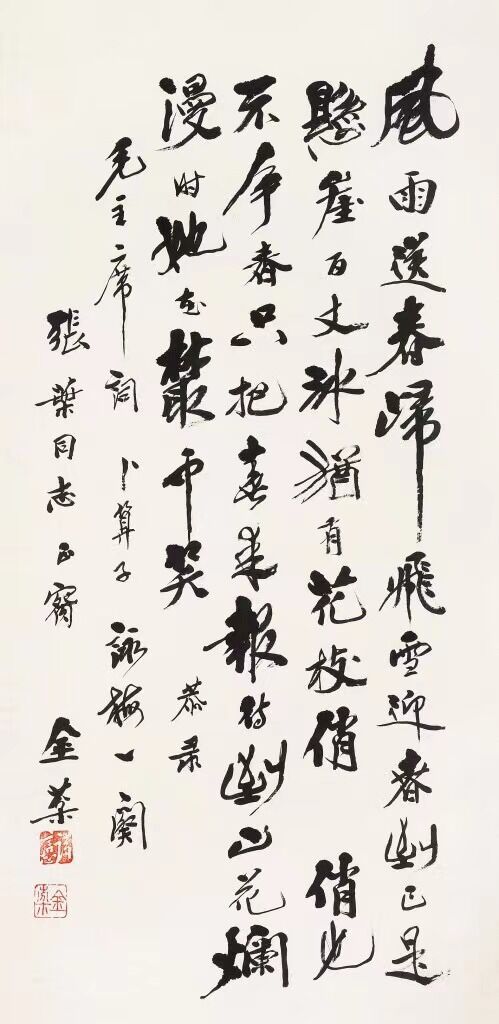 風雨送春歸飛雪迎春到已是
懸崖百丈冰猶有花枝俏 俏也
不争春只把春来報待到山花爛
漫时她在叢中笑 恭录
毛主席詞 卜算子 詠梅一闋
張 同志正 金